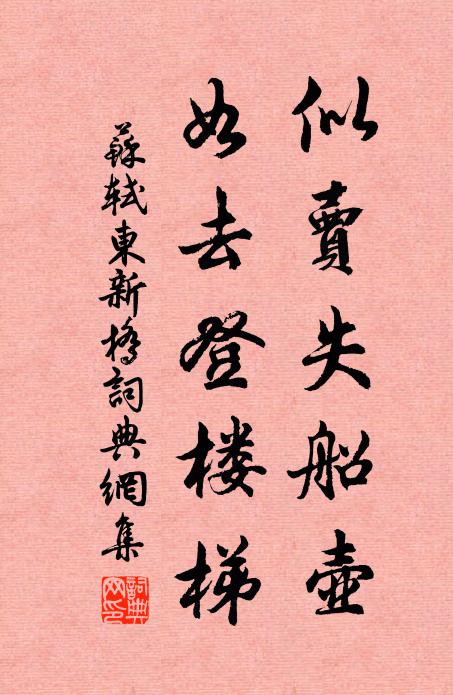 似賣失船壺
如去登楼梯
蘇軾東新橋詞典網集
詞典網印